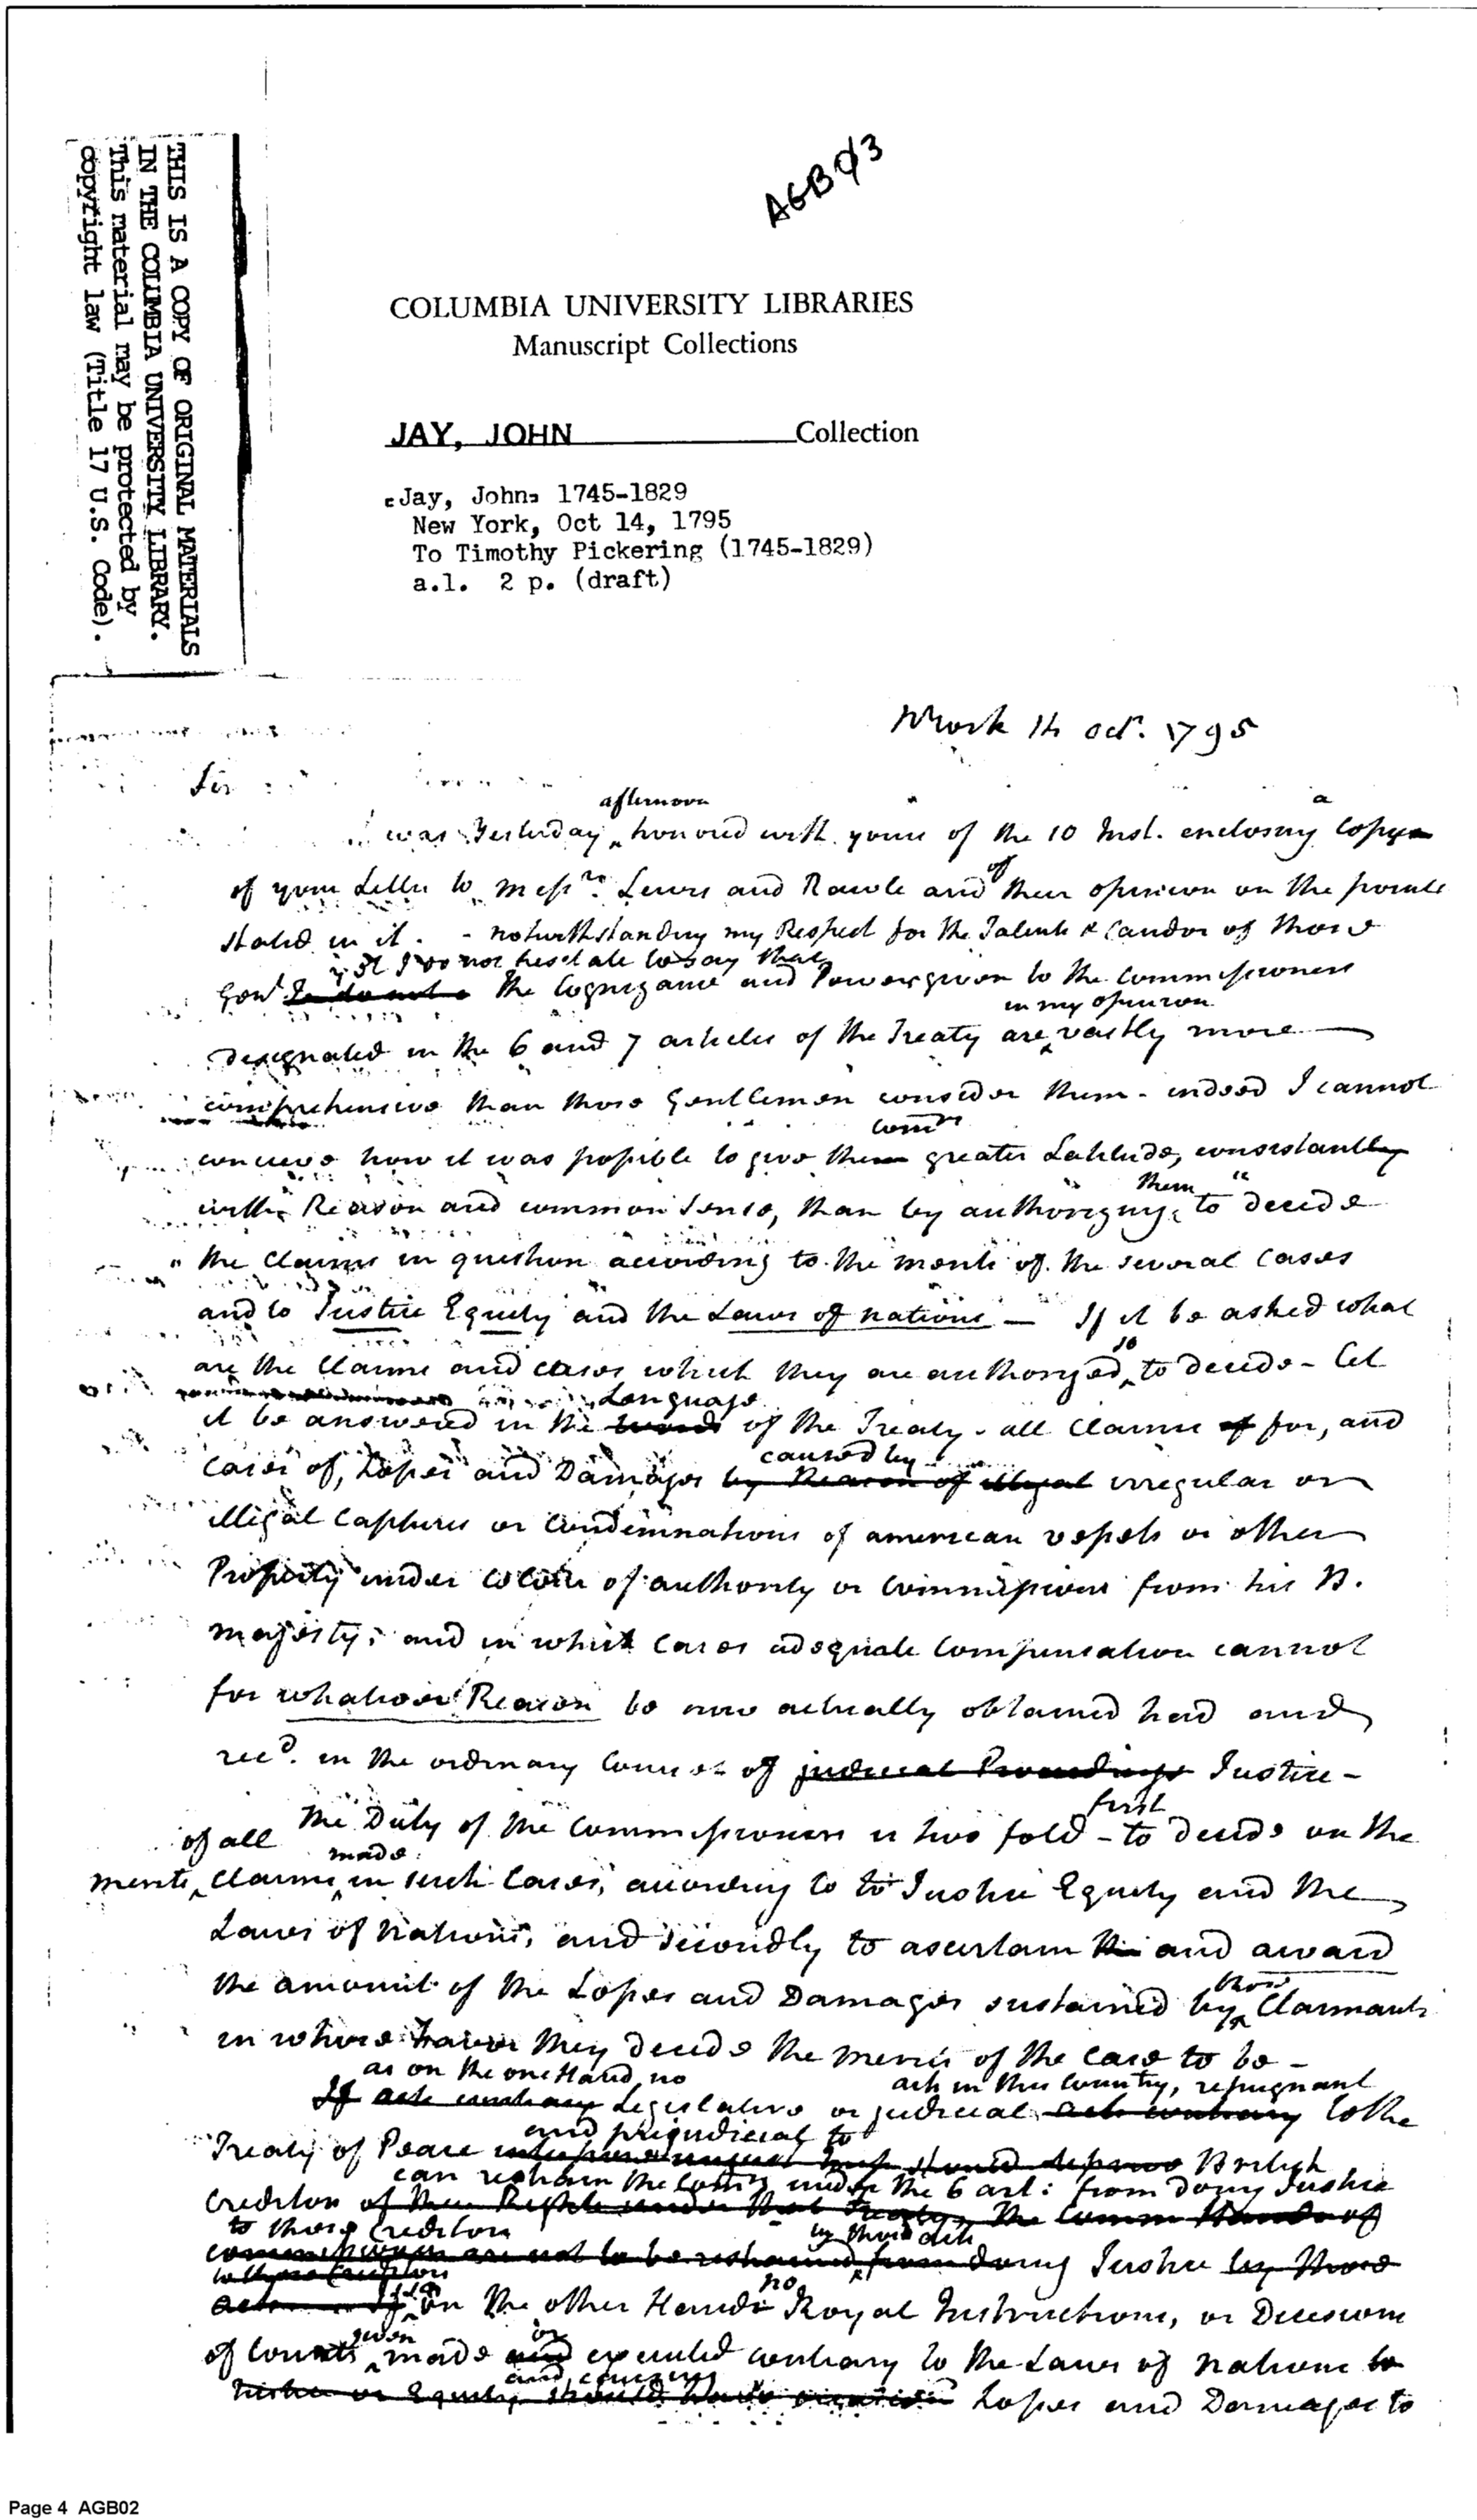 AGB03
THIS IS A COPY OF ORIGINAL MATERIALS
IN THE COLUMBIA UNIVERSITY LIBRARY.
This material may be protected by
copyright law (Title 17 U.S. Code).
COLUMBIA UNIVERSITY LIBRARIES
Manuscript Collections
JAY, JOHN Collection
[Jay, John] 1745-1829
New York, Oct 14, 1795
To Timothy Pickering (1745-1829)
a.l. 2 p. (draft)
NYork 14 Oct. 1795
Sir
afternoon a
was Yesterday honored with yours of the 10 Inst. enclosing Copy
of
of your Letter to Messrs. Lewis and Rawle and their opinion on the points
stated in it. - notwithstanding my Respect for the Talents & Candor of those
I do not hesitate to say that
Gent the Cognizance and Powers given to the Commissioners
in my opinion
designated in the 6 and 7 articles of the Treaty are vastly more
comprehensive than those Gentlemen consider them - indeed I cannot
Comrs
conceive how it was possible to give greater Latitude, consistantly
them "
with Reason and common Sense, than by authorizing to decide
" the Claims in question according to the merits of the several Cases
and to Justice Equity and the Laws of nations — If it be asked what
so
are the Claims and cases which they are authorized to decide - let
Language
it be answered in the words of the Treaty - all Claims of for, and
caused by
Cases of, Losses and Damages by Reason of illegal irregular or
illegal Captures or Condemnations of american vessels or other
Property under colour of authority or Commissions from his B.
majesty; and in which Cases adequate Compensation cannot
for whatever Reason be now actually obtained had and
recd. in the ordinary Course of judicial Proceedings Justice -
first
The Duty of the Commissioners is two fold - to decide on the
of all made
merits Claims in such Cases, according to to Justice Equity and the
Laws of Nations, and secondly to ascertain the and award
those
the amount of the Losses and Damages sustained by Claimants
in whose Favor they decide the merits of the Case to be -
as on the one Hand no acts in this Country, repugnant
If acts contrary Legislative or judicial acts contrary to the
and prejudicial to
Treaty of Peace should deprive British
can restrain the Comrs under the 6 art: from doing Justice
Creditors of their Rights under that Treaty, the
to those Creditors by those acts
commissioners are not to be restrained from doing Justice by those
to those Creditors
no
acts on the other Hand Royal Instructions, or Decisions
given or
of Courts made and executed contrary to the Laws of nations to
and causing
Justice or Equity, should have occasioned Losses and Damages to
Page 4 AGB02